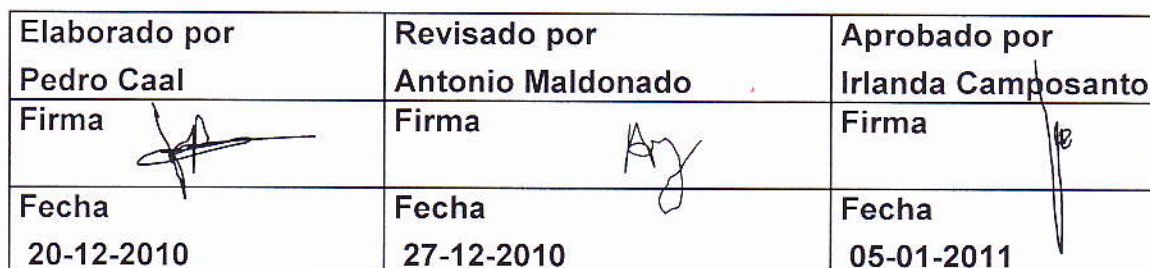 Elaborado por
Pedro Caal
Revisado por
Antonio Maldonado
Aprobado por
Irlanda Camposanto
Firma
Firma
Firma
Fecha
20-12-2010
Fecha
27-12-2010
Fecha
05-01-2011